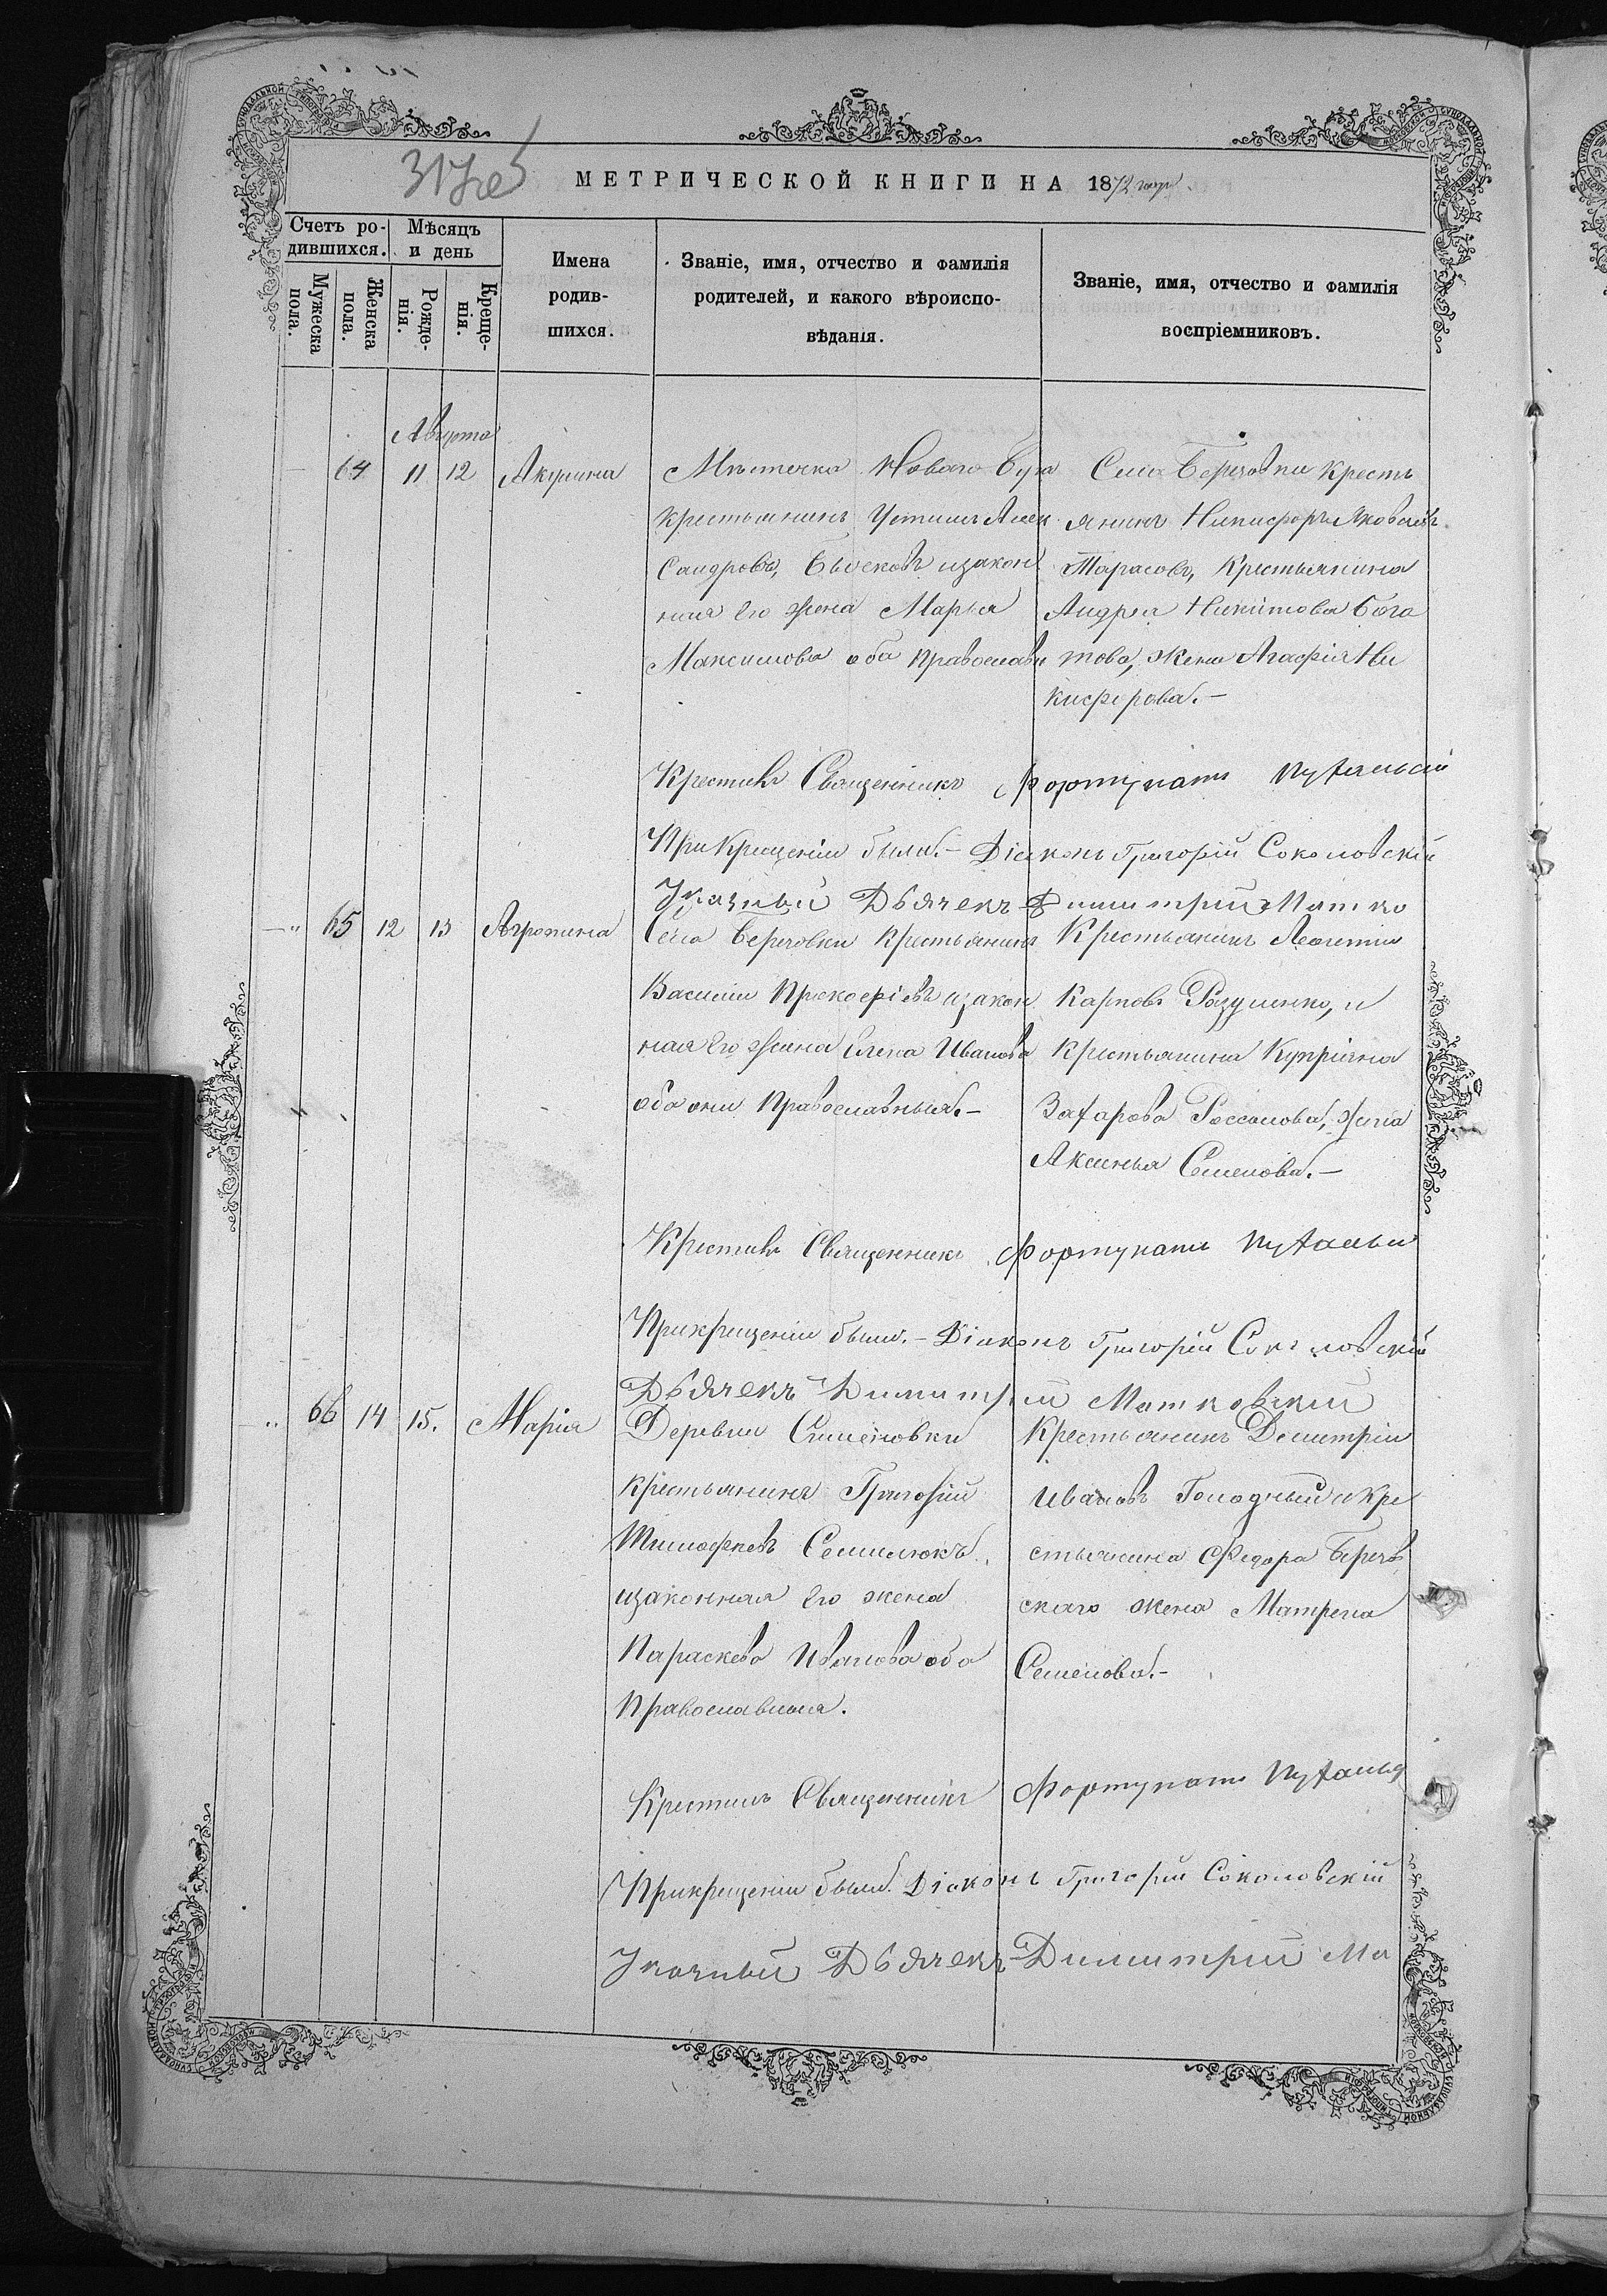 317об
МЕТРИЧЕСКОЙ КНИГИ НА 1872 годъ.
Счетъ ро-
дившихся.
Мѣсяцъ
и день
Мужеска
пола.
Женска
пола.
Рожде-
нія.
Креще-
нія.
Имена
родив-
шихся.
Званіе, имя, отчество и фамилія
родителей, и какого вѣроиспо-
вѣданія.
Званіе, имя, отчество и фамилія
воспріемниковъ.
Августа
64 11 12 Акулина
Мѣстечка Новаго Буга
крестьянинъ Устимъ Алек
сандровъ, изакон
ная его жена Марья
Максимова оба православн
Села Березовки кресть
янинъ Никифоръ Яковлевъ
Тарасовъ, крестьянина
Андрея Никитова Бога
това, жена Агафія Ни
кифорова.-
Крестилъ Священникъ Фортунатъ
При Крещеніи были.- Діаконъ Григорій Соколовскій
Указный Дьячекъ Димитрій Матко
-" 65 12 13 Агропина
Села Березовки крестьянинъ
Василій Прокофіевъ изакон
ная его жена Елена Иванова
оба они Православныя.-
Крестьянинъ Леонтій
Карповъ Разуменко, и
крестьянина Купріяна
Захарова жена
Аксинья Семенова.-
Крестилъ Священникъ Фортунатъ
При крещеніи были.- Діаконъ Григорій Соколовскій
Дьячекъ Димитрій Матковскій
.. 66 14 15. Марія
Деревни Семеновки
крестьянинъ Григорій
Тимофеевъ Семилюкъ
изаконная его жена
Параскева Иванова оба
Православныя.
Крестьянинъ Демитрій
Ивановъ Голодный и кре
стьянина Федора Берез
скаго жена Матрена
Семенова.-
Крестилъ Священникъ Фортунатъ
При крещеніи были. Діаконъ Григорій Соколовскій
Указный Дьячекъ Димитрій Ма